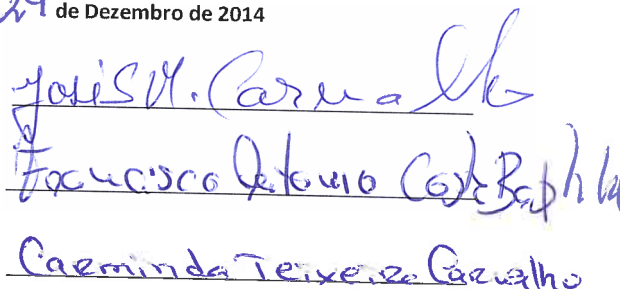 de Dezembro de 2014
José M. Carvalho
Francisco António Costa Baptista
Carminda Teixeira Carvalho